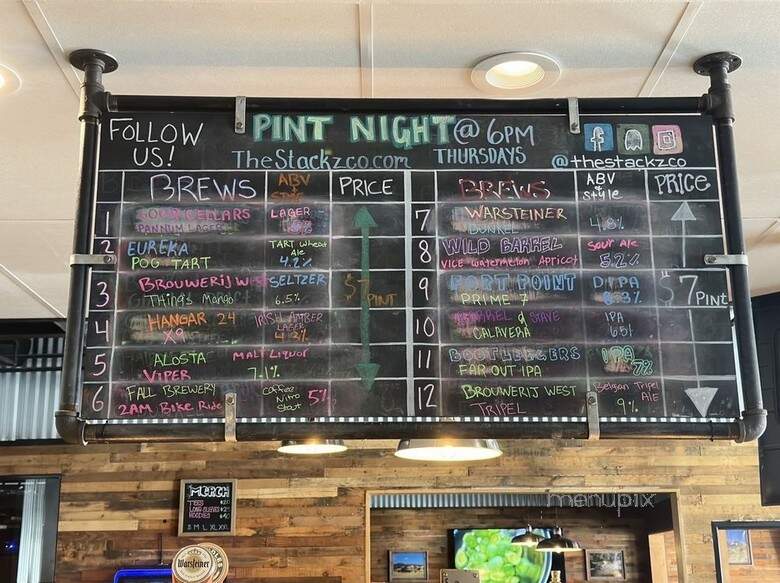 FOLLOW US!
PINT NIGHT @ 6PM
TheStackzco.com THURSDAYS
@thestackzco
BREWS ABV & STYLE PRICE
1 SOUR CELLARS LAGER
PANNUM LAGER 5%
2 EUREKA TART Wheat Ale
POG TART 4.2%
3 BROUWERIJ WEST SELTZER
THINGS Mango 6.5%
4 HANGAR 24 IRISH AMBER LAGER
X9
5 ALOSTA MALT LIQUOR
VIPER 7.1%
6 FALL BREWERY Coffee Nitro Stout 5%
2AM Bike Ride
$7 PINT
BREWS ABV & Style PRICE
7 WARSTEINER 4.8%
DUNKEL
8 WILD BARREL Sour Ale
VICE Watermelon Apricot 5.2%
9 FORT POINT DIPA
PRIME 7 8.3%
10 BARREL & STAVE IPA
CALAVERA
11 BOOTLEGGERS IPA
FAR OUT IPA 7%
12 BROUWERIJ WEST Belgian Tripel ALE
TRIPEL 9%
$7 Pint
MERCH
TEES $20
LONG SLEEVES
HOODIES
S M L XL XXL
Warsteiner
menupix